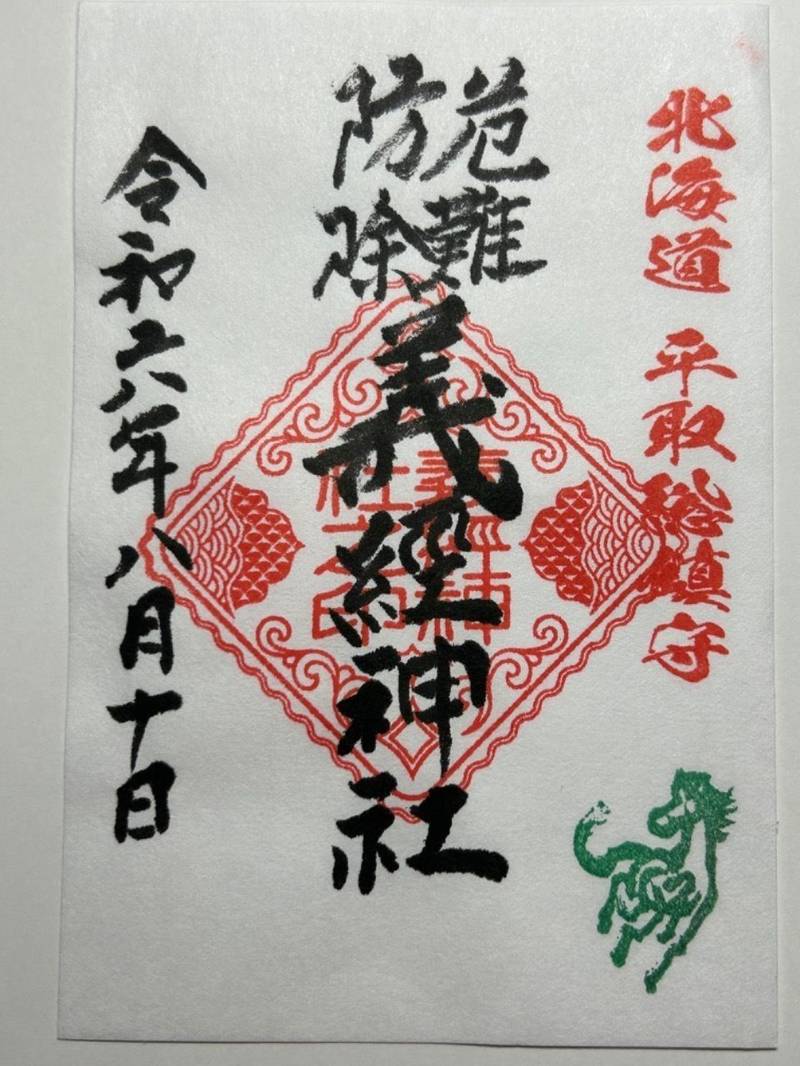 北海道 平取総鎮守
危難
防除
義経神社
義経神
社之印
令和六年八月十日